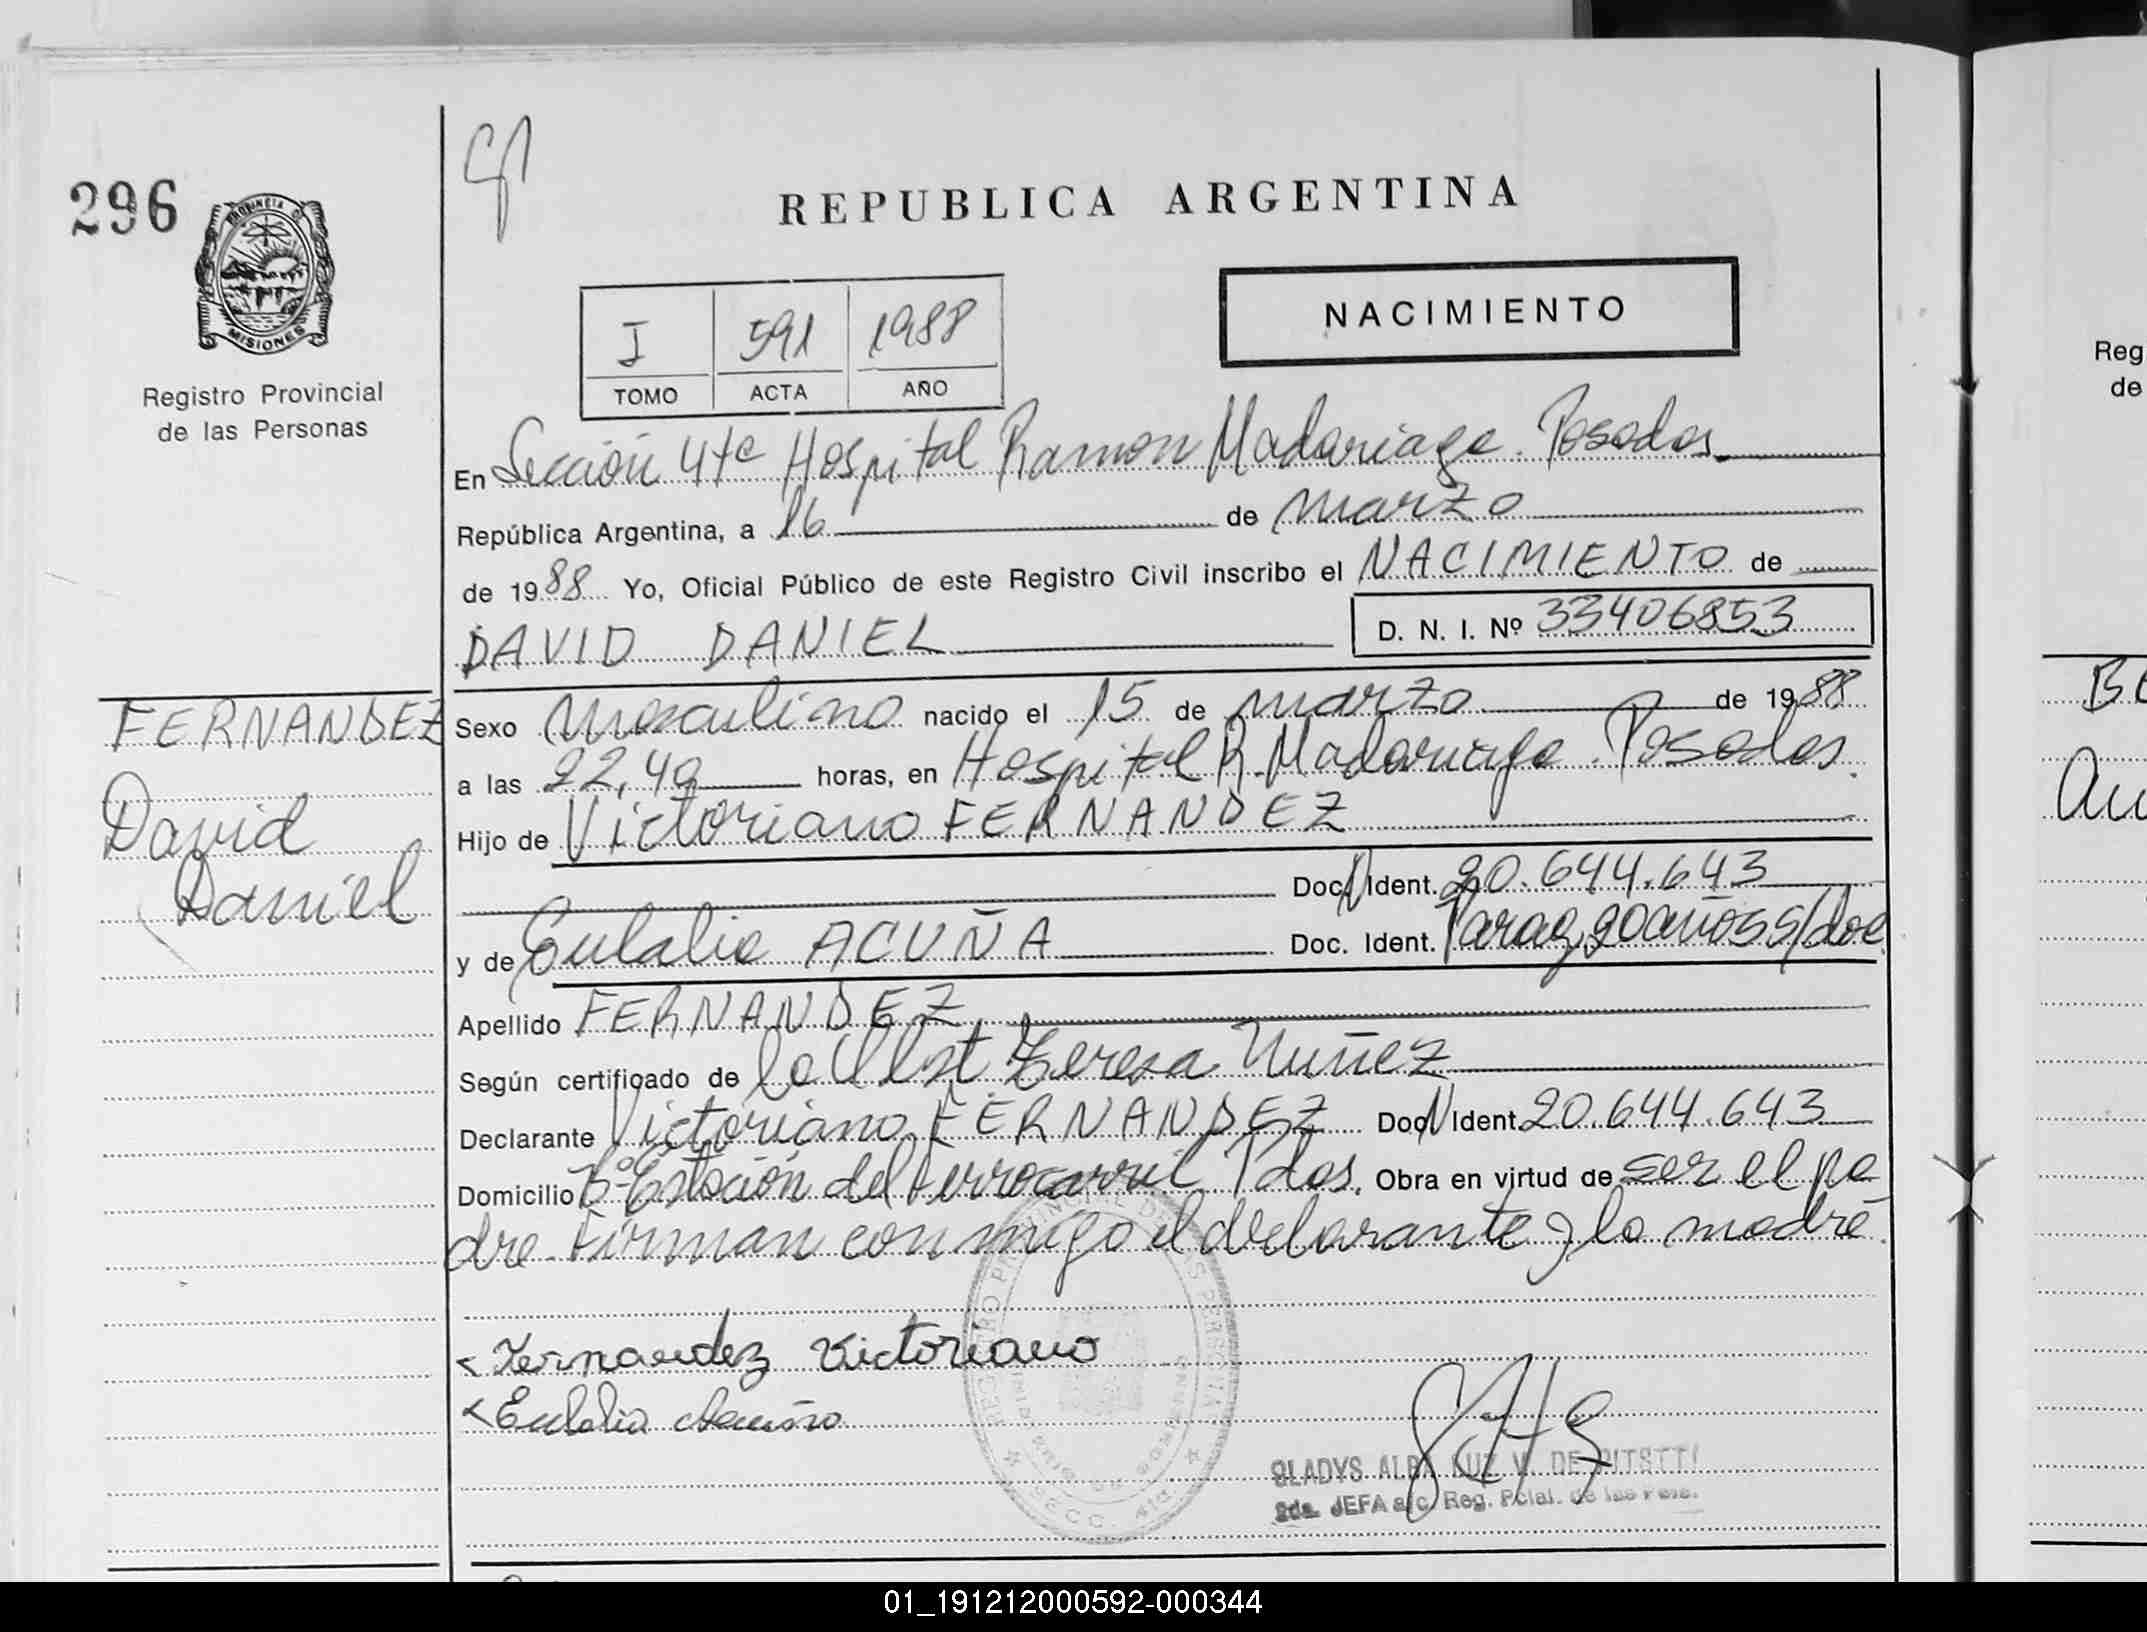 296
PROVINCIA DE
MISIONES
Registro Provincial
de las Personas
REPUBLICA ARGENTINA
NACIMIENTO
I 591 1988
TOMO ACTA AÑO
En Sección 4ta Hospital Ramon Madariaga. Posadas
República Argentina, a 16 de marzo
de 1988 Yo, Oficial Público de este Registro Civil inscribo el NACIMIENTO de
DAVID DANIEL D. N. I. Nº 33406853
FERNANDEZ
David
Daniel
Sexo Masculino nacido el 15 de marzo de 1988
a las 22,40 horas, en Hospital R. Madariaga. Posadas.
Hijo de Victoriano FERNANDEZ
Doc. N Ident. 20.644.643
y de Eulalia ACUÑA Doc. Ident. Parag. 20 años s/doc
Apellido FERNANDEZ
Según certificado de la Obst. Teresa Nuñez
Declarante Victoriano FERNANDEZ Doc N Ident. 20.644.643
Domicilio Bº Estación del Ferrocarril Pdas. Obra en virtud de ser el pa
dre. Firman conmigo el declarante y la madre.
Fernandez Victoriano
Eulalia Acuña
REGISTRO PROVINCIAL DE LAS PERSONAS
SECC. 4ta
GLADYS ALBA LUZ V. DE
2da. JEFA a/c Reg. Pcial. de las Pers.
Reg
de
BE
01_191212000592-000344